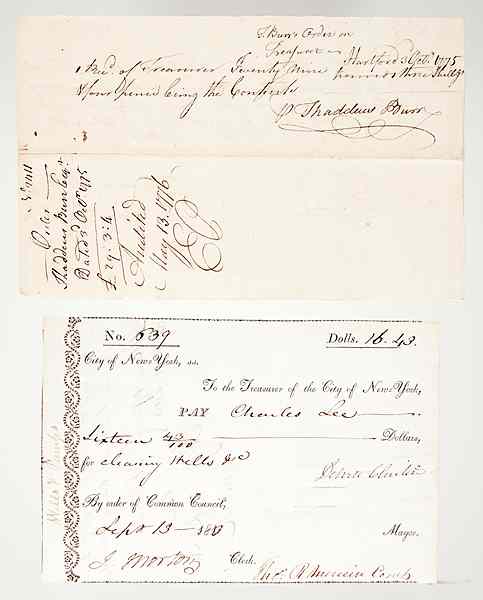 T. Burr's Order on
Treasurer
Hartford 3 Octr. 1775
Recd. of Treasurer Twenty Nine pounds three Shillgs
& four pence being the Contents
pr Thaddeus Burr
Order
Thaddeus Burr Esqr.
Dated 3d Octr. 1775
£29.3:4
Audited
May 13. 1776
No. 639 Dolls. 16.43
City of New-York, ss.
To the Treasurer of the City of New-York,
PAY Charles Lee
Sixteen 43/100 Dollars,
for cleaning Wells &c
By order of Common Council;
Sept 13 Mayor.
J. Morton Clerk.
Thos. R Mercein Comp